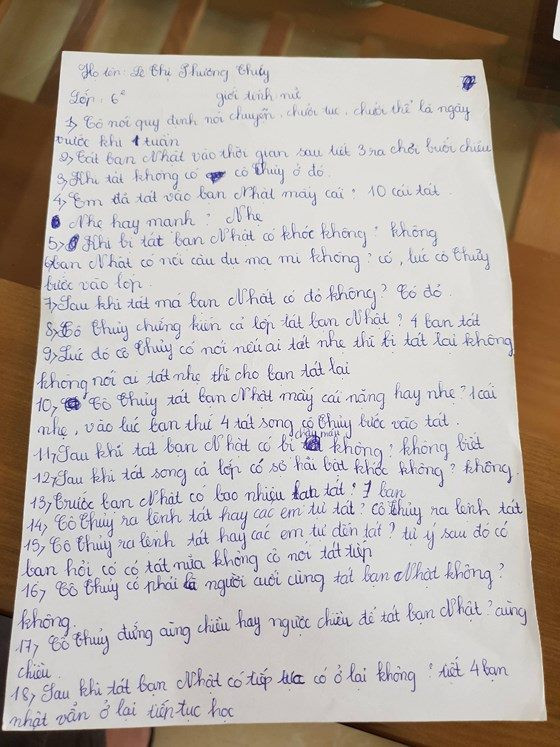 Họ tên: Lê Thị Phương Thúy
Lớp: 6ᵉ giới tính nữ
1, Cô nói quy định nói chuyện, chửi tục, chửi thề là ngày
trước khi 1 tuần
2, Tát bạn Nhật vào thời gian sau tiết 3 ra chơi buổi chiều
3, Khi tát không có cô Thủy ở đó.
4, Em đã tát vào bạn Nhật mấy cái? 10 cái tát.
Nhẹ hay mạnh? Nhẹ
5, Khi bị tát bạn Nhật có khóc không? không
6, bạn Nhật có nói câu du ma mi không? có, lúc cô Thủy
bước vào lớp.
7, Sau khi tát má bạn Nhật có đỏ không? Có đỏ.
8, Cô Thủy chứng kiến cả lớp tát bạn Nhật? 4 bạn tát
9, Lúc đó cô Thủy có nói nếu ai tát nhẹ thì bị tát lại không
không nói ai tát nhẹ thì cho bạn tát lại
10, Cô Thủy tát bạn Nhật mấy cái nặng hay nhẹ? 1 cái
nhẹ, vào lúc bạn thứ 4 tát song cô Thủy bước vào tát.
11, Sau khi tát bạn Nhật có bị chảy máu không? không biết
12, Sau khi tát song cả lớp có sợ hãi bật khóc không? không.
13, Trước bạn Nhật có bao nhiêu bạn tát? 7 bạn
14, Cô Thủy ra lệnh tát hay các em tự tát? cô Thủy ra lệnh tát
15, Cô Thủy ra lệnh tát hay các em tự đến tát? tự ý sau đó có
bạn hỏi cô có tát nữa không cô nói tát tiếp
16, Cô Thủy có phải là người cuối cùng tát bạn Nhật không?
không.
17, Cô Thủy đứng cùng chiều hay ngược chiều để tát bạn Nhật? cùng
chiều.
18, Sau khi tát bạn Nhật có tiếp tục có ở lại không? tiết 4 bạn
nhật vẫn ở lại tiếp tục học